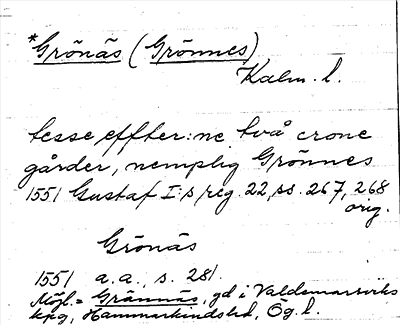 *Grönäs (Grönnes)
Kalm. l.
tesse effter:ne två crone
gårder, nemplig Grönnes
1551 Gustaf I:s reg. 22, ss. 267, 268
orig.
Grönäs
1551 a.a., s. 281.
Möjl. = Grännäs, gd i Valdemarsviks
kpg, Hammarkinds hd, Ög. l.